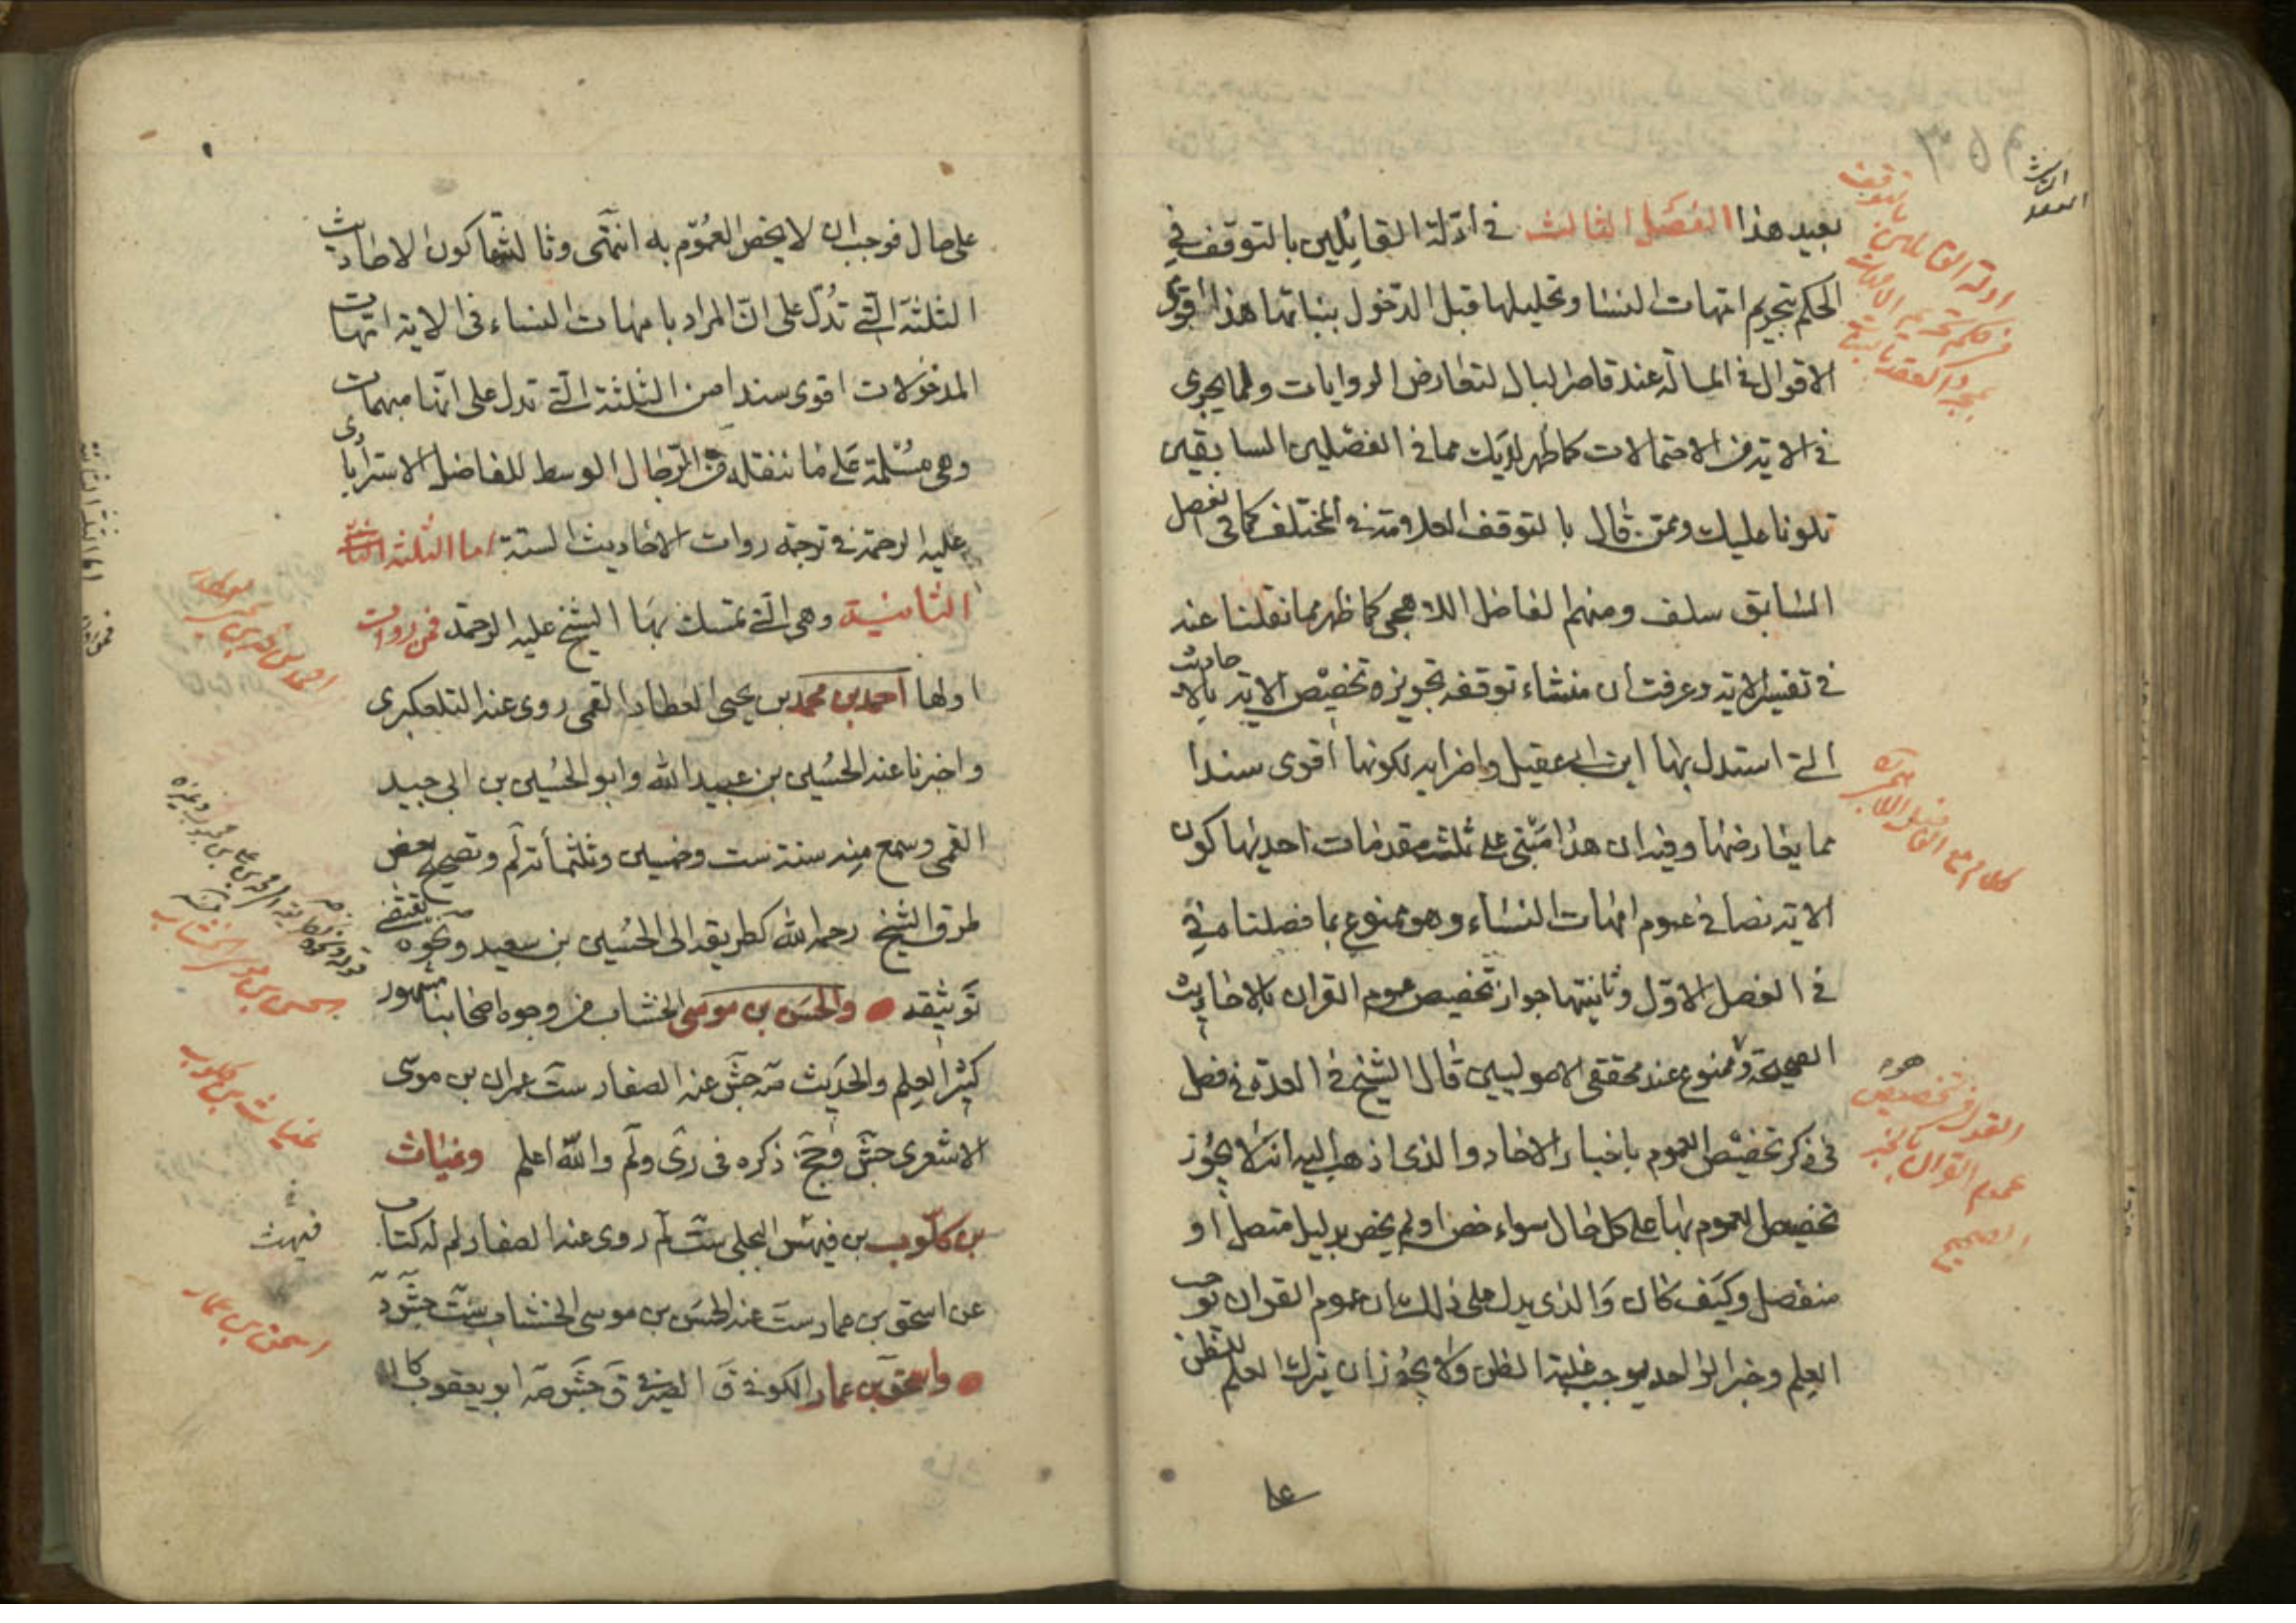 بعيد هذا الفصل الثالث في ادلة القايلين بالتوقف في
الحكم بتحريم امهات النسا وتحليلها قبل الدخول ببناتها هذا اقوى
الاقوال في المسالة عند قاصر البال لتعارض الروايات ولما يجرى
في الاية من الاحتمالات كما ظهر لديك مما في الفصلين السابقين
تلونا عليك وممن قال بالتوقف العلامة في المختلف كما في الفصل
السابق سلف ومنهم الفاضل اللاهجى كما ظهر مما نقلنا عنه
في تفسير الاية وعرفت ان منشاء توقفه تجويزه تخصيص الاية بالاحاديث
التي استدل بها ابن ابي عقيل واضرابه لكونها اقوى سندا
مما يعارضها وفيه ان هذا مبنى على ثلث مقدمات احديها كون
الاية نصا في عموم امهات النساء وهو ممنوع بما فصلنا
في الفصل الاول وثانيتها جواز تخصيص عموم القران بالاحاديث
الصحيحة وممنوع عند محققى الاصوليين قال الشيخ في العدة في فصل
في ذكر تخصيص العموم باخبار الاحاد والذى اذهب اليه انه لا يجوز
تخصيص العموم بها على كل حال سواء خص او لم يخص بدليل متصل او
منفصل وكيف كان والذى يدل على ذلك ان عموم القران يوجب
العلم وخبر الواحد يوجب غلبة الظن ولا يجوز ان يترك العلم للظن
على
ادلة القايلين بالتوقف
كلام مع الفاضل اللاهجى
القول في تخصيص
عموم القران بالخبر
الصحيح
على حال فوجب ان لا يخص العموم به انتهى وثالثتها كون الاحاديث
الثلثة التي تدل على ان المراد بامهات النساء في الاية امهات
المدخولات اقوى سندا من الثلثة التي تدل على انها مبهمات
وهى مسلمة على ما ننقله من الرجال الوسط للفاضل الاسترابادى
عليه الرحمة في ترجمة روات الاحاديث الستة اما الثلثة
الثانية وهى التي تمسك بها الشيخ عليه الرحمة فمن روات
اولها احمد بن محمد بن يحيى العطار القمى روى عنه التلعكبرى
واخبرنا عنه الحسين بن عبيد الله وابو الحسين بن ابى جيد
القمى وسمع منه سنة ست وخمسين وثلثمائة لم وتصحيح بعض
طرق الشيخ رحمه الله كطريقه الى الحسين بن سعيد ونحوه يقتضى
توثيقه والحسن بن موسى الخشاب من وجوه اصحابنا مشهور
كثير العلم والحديث صه جش عنه الصفار ست عمران بن موسى
الاشعرى جش وجخ ذكره في رى ولم والله اعلم وغياث
بن كلوب بن فيهس البجلى ست لم روى عنه الصفار لم له كتاب
عن اسحق بن عمار ست عنه الحسن بن موسى الخشاب ست جش
واسحق بن عمار الكوفى ق الصيرفى ق جش صه ابو يعقوب كان
احمد بن محمد بن يحيى العطار
حسن بن موسى الخشاب
غياث بن كلوب
فيهث
اسحق بن عمار